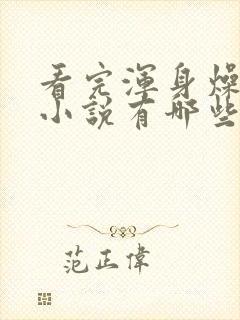 看完渾身燥
小說有哪些
范正偉